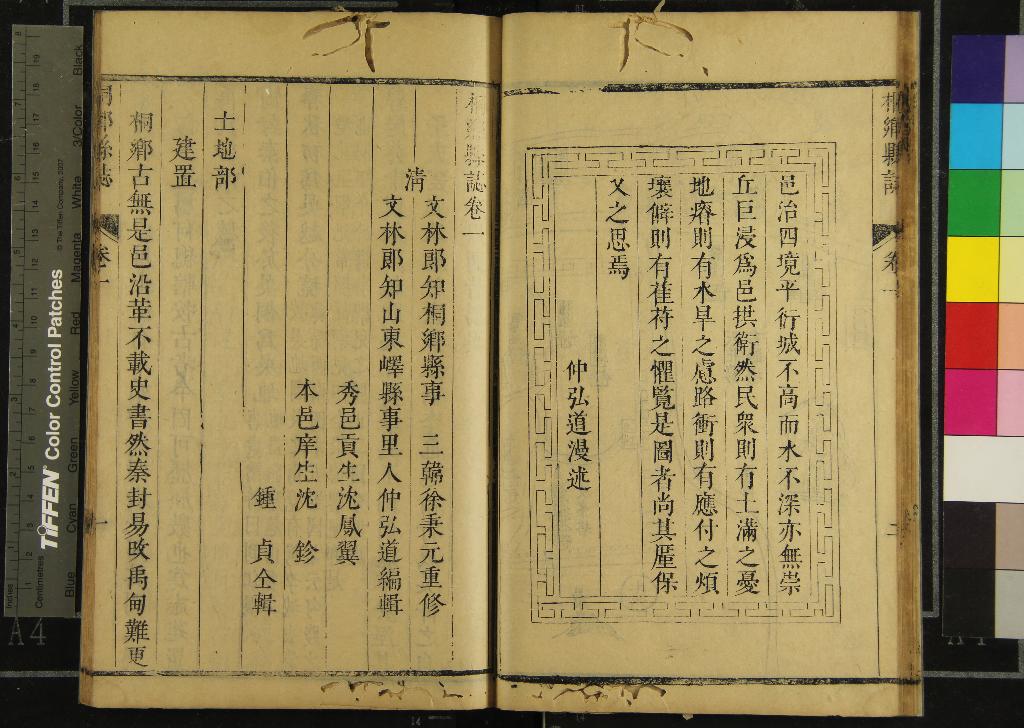 邑治四境平衍城不高而水不深亦無崇
丘巨浸爲邑拱衛然民衆則有土滿之憂
地瘠則有水旱之慮路衝則有應付之煩
壤僻則有萑苻之懼覽是圖者尚其厪保
乂之思焉
仲弘道漫述
桐鄉縣誌卷一
清
文林郎知桐鄉縣事 三韓徐秉元重修
文林郎知山東嶧縣事里人仲弘道編輯
秀邑貢生沈鳳翼
本邑庠生沈 鉁
鍾 貞仝輯
土地部
建置
桐鄉古無是邑沿革不載史書然秦封易攺禹甸難更
桐鄉縣誌
卷一
一
桐鄉縣誌
卷一
二
TIFFEN Color Control Patches
© The Tiffen Company, 2007
Blue Cyan Green Yellow Red Magenta White 3/Color Black
Inches
Centimetres
A4